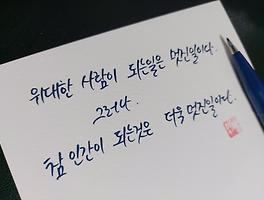 위대한 사람이 되는일은 멋진일이다.
그러나.
참 인간이 되는것은 더욱 멋진일이다.